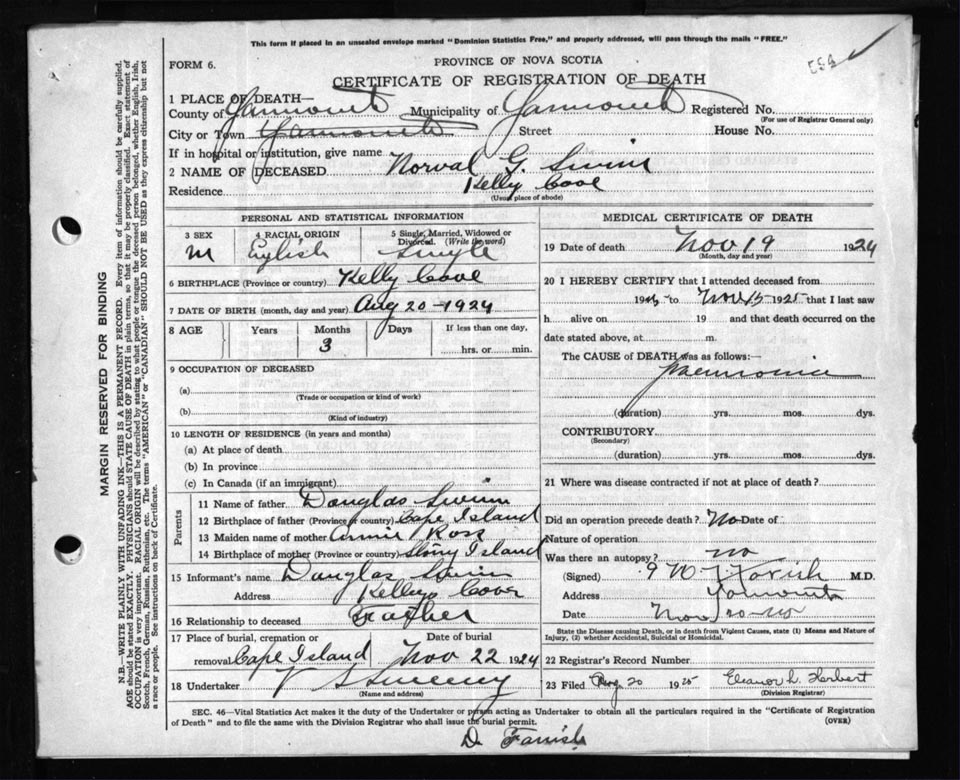 This form if placed in an unsealed envelope marked "Dominion Statistics Free," and properly addressed, will pass through the mails "FREE."
FORM 6.
PROVINCE OF NOVA SCOTIA
CERTIFICATE OF REGISTRATION OF DEATH
1 PLACE OF DEATH—
County of Yarmouth Municipality of Yarmouth Registered No.
(For use of Registrar General only)
City or Town Yarmouth Street House No.
If in hospital or institution, give name
2 NAME OF DECEASED Norval G. Swim
Residence Kelly Cove
(Usual place of abode)
PERSONAL AND STATISTICAL INFORMATION
3 SEX 4 RACIAL ORIGIN 5 Single, Married, Widowed or Divorced. (Write the word)
M English Single
6 BIRTHPLACE (Province or country) Kelly Cove
7 DATE OF BIRTH (month, day and year) Aug 20 - 1924
8 AGE Years Months Days If less than one day,
3 hrs. or min.
9 OCCUPATION OF DECEASED
(a)
(Trade or occupation or kind of work)
(b)
(Kind of industry)
10 LENGTH OF RESIDENCE (in years and months)
(a) At place of death
(b) In province
(c) In Canada (if an immigrant)
Parents
11 Name of father Douglas Swim
12 Birthplace of father (Province or country) Cape Island
13 Maiden name of mother Annie Ross
14 Birthplace of mother (Province or country) Stony Island
15 Informant's name Douglas Swim
Address Kellys Cove
16 Relationship to deceased Father
17 Place of burial, cremation or removal Cape Island Date of burial Nov 22 1924
18 Undertaker V S Sweeny
(Name and address)
MEDICAL CERTIFICATE OF DEATH
19 Date of death Nov 19 1924
(Month, day and year)
20 I HEREBY CERTIFY that I attended deceased from
19 to Nov 15 1925 that I last saw
h alive on 19 and that death occurred on the
date stated above, at m.
The CAUSE of DEATH was as follows:—
pneumonia
(duration) yrs. mos. dys.
CONTRIBUTORY
(Secondary)
(duration) yrs. mos. dys.
21 Where was disease contracted if not at place of death?
Did an operation precede death? No Date of
Nature of operation
Was there an autopsy? no
(Signed) Farish M.D.
Address Yarmouth
Date Nov 20
State the Disease causing Death, or in death from Violent Causes, state (1) Means and Nature of Injury, (2) whether Accidental, Suicidal or Homicidal.
22 Registrar's Record Number
23 Filed 20 1925 Eleanor L. Herbert
(Division Registrar)
SEC. 46—Vital Statistics Act makes it the duty of the Undertaker or person acting as Undertaker to obtain all the particulars required in the "Certificate of Registration
of Death" and to file the same with the Division Registrar who shall issue the burial permit. (OVER)
D. Farish
MARGIN RESERVED FOR BINDING
N.B.—WRITE PLAINLY WITH UNFADING INK—THIS IS A PERMANENT RECORD. Every item of information should be carefully supplied.
AGE should be stated EXACTLY. PHYSICIANS should STATE CAUSE OF DEATH in plain terms, so that it may be properly classified. Exact statement of
OCCUPATION is very important. RACIAL ORIGIN will be described by stating to what people or tongue the deceased person belonged, whether English, Irish,
Scotch, French, German, Russian, Ruthenian, etc. The terms "AMERICAN" or "CANADIAN" SHOULD NOT BE USED as they express citizenship but not
a race or people. See instructions on back of Certificate.